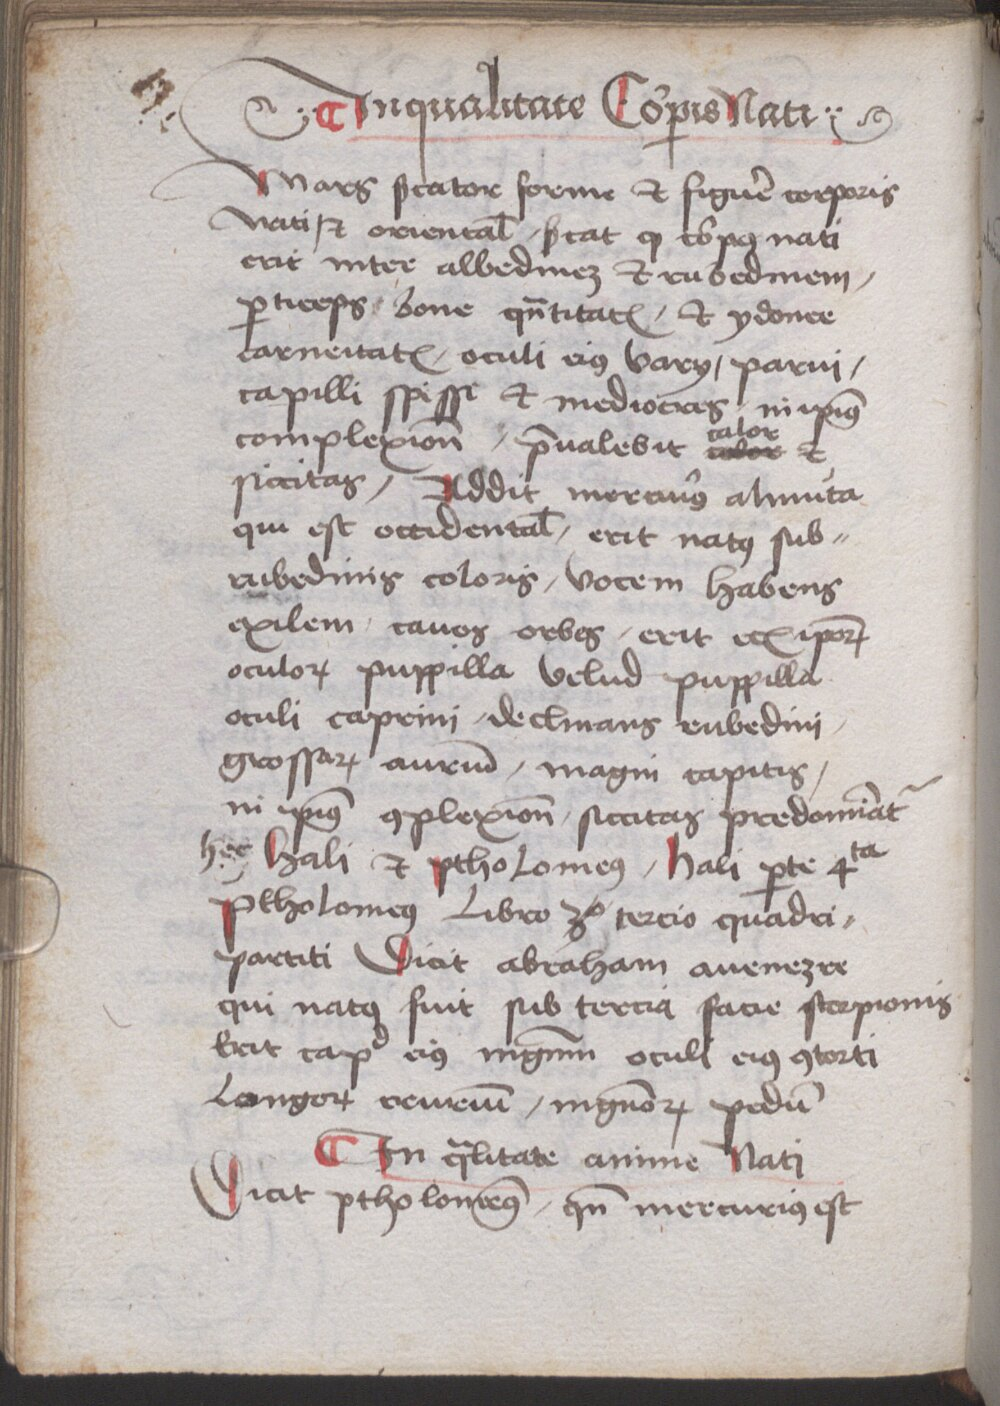 In qualitate Corpis Nati
Mars sicator forme et figure corporis
Nati et oriental scat qp corpus nati
erit inter albedinez et rubedinem,
pticeps, bone quantitatis, et ydonee
carneitatis, oculi eius vary, parui,
capilli spissi et mediocres, in ipius
complexion, pualebit calor color et
siccitas, Addit mercurius almuta
qui est occidental, erit natus sub„
rubedinis coloris, Vocem habens
exilem, cauos orbes, erit ipor
oculor puppilla velud puppilla
oculi caprini, declinans rubedini,
grossar aurium, magni capitis,
in ipius 9plexion, siccitas predominat
hec hali et ptholomeus, Hali pte 4ta
Ptholomeus Libro 3o tercio quadri„
partiti Dicit abraham auenezre
qui natus fuit sub tercia facie scorpionis
Erit cap eius magnum oculi eius 9torti
Longor crurium, magnor pedum
In qualitate anime Nati
Dicit ptholomeus, qn mercurius est